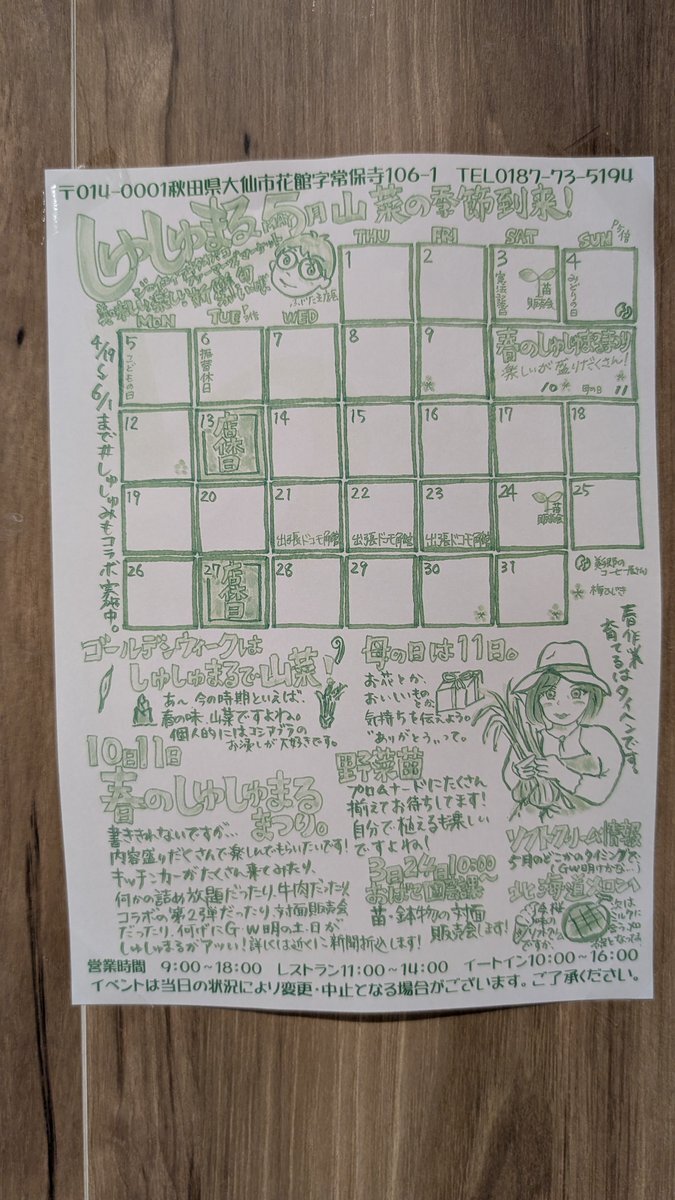 〒014-0001秋田県大仙市花館字常保寺106-1 TEL0187-73-5194
しゅしゅまる5月山菜の季節到来!
MON TUE WED THU FRI SAT SUN
1 2 3 憲法記念日 苗販売会 4 みどりの日
5 こどもの日 6 振替休日 7 8 9 春のしゅしゅまるまつり
楽しいが盛りだくさん!
10 母の日 11
12 13 店休日 14 15 16 17 18
19 20 21 出張ドコモ角館 22 出張ドコモ角館 23 出張ドコモ角館 24 苗販売会 25
26 27 店休日 28 29 30 31
4/19〜6/1まで#しゅしゅみもコラボ実施中。
美郷のコーヒー屋さん
梅ひじき
ゴールデンウィークは
しゅしゅまるで山菜!
あ〜今の時期といえば、
春の味、山菜ですよね。
個人的にはコシアブラの
お浸しが大好きです。
母の日は11日。
お花とか、
おいしいものとか、
気持ちを伝えよう。
"ありがとう"って。
春作業
育てるはタイヘンです。
10日11日
春のしゅしゅまる
まつり。
書ききれないですが…
内容盛りだくさんで楽しんでもらいたいです!
キッチンカーがたくさん来てみたり、
何かの詰め放題だったり、牛肉だったり
コラボの第2弾だったり、対面販売会
だったり、何げにGW明の土・日が
しゅしゅまるがアツい!詳しくは近くに新聞折込します!
野菜苗
プロムナードにたくさん
揃えてお待ちしてます!
自分で植えるも楽しい
ですよね!
3日24日10:00〜
おはなで園芸
苗・鉢物の対面
販売会します!
ソフトクリーム情報
5月のどこかのタイミングで、
(GW明けかな…)
北海道メロン!
営業時間 9:00〜18:00 レストラン11:00〜14:00 イートイン10:00〜16:00
イベントは当日の状況により変更・中止となる場合がございます。ご了承ください。